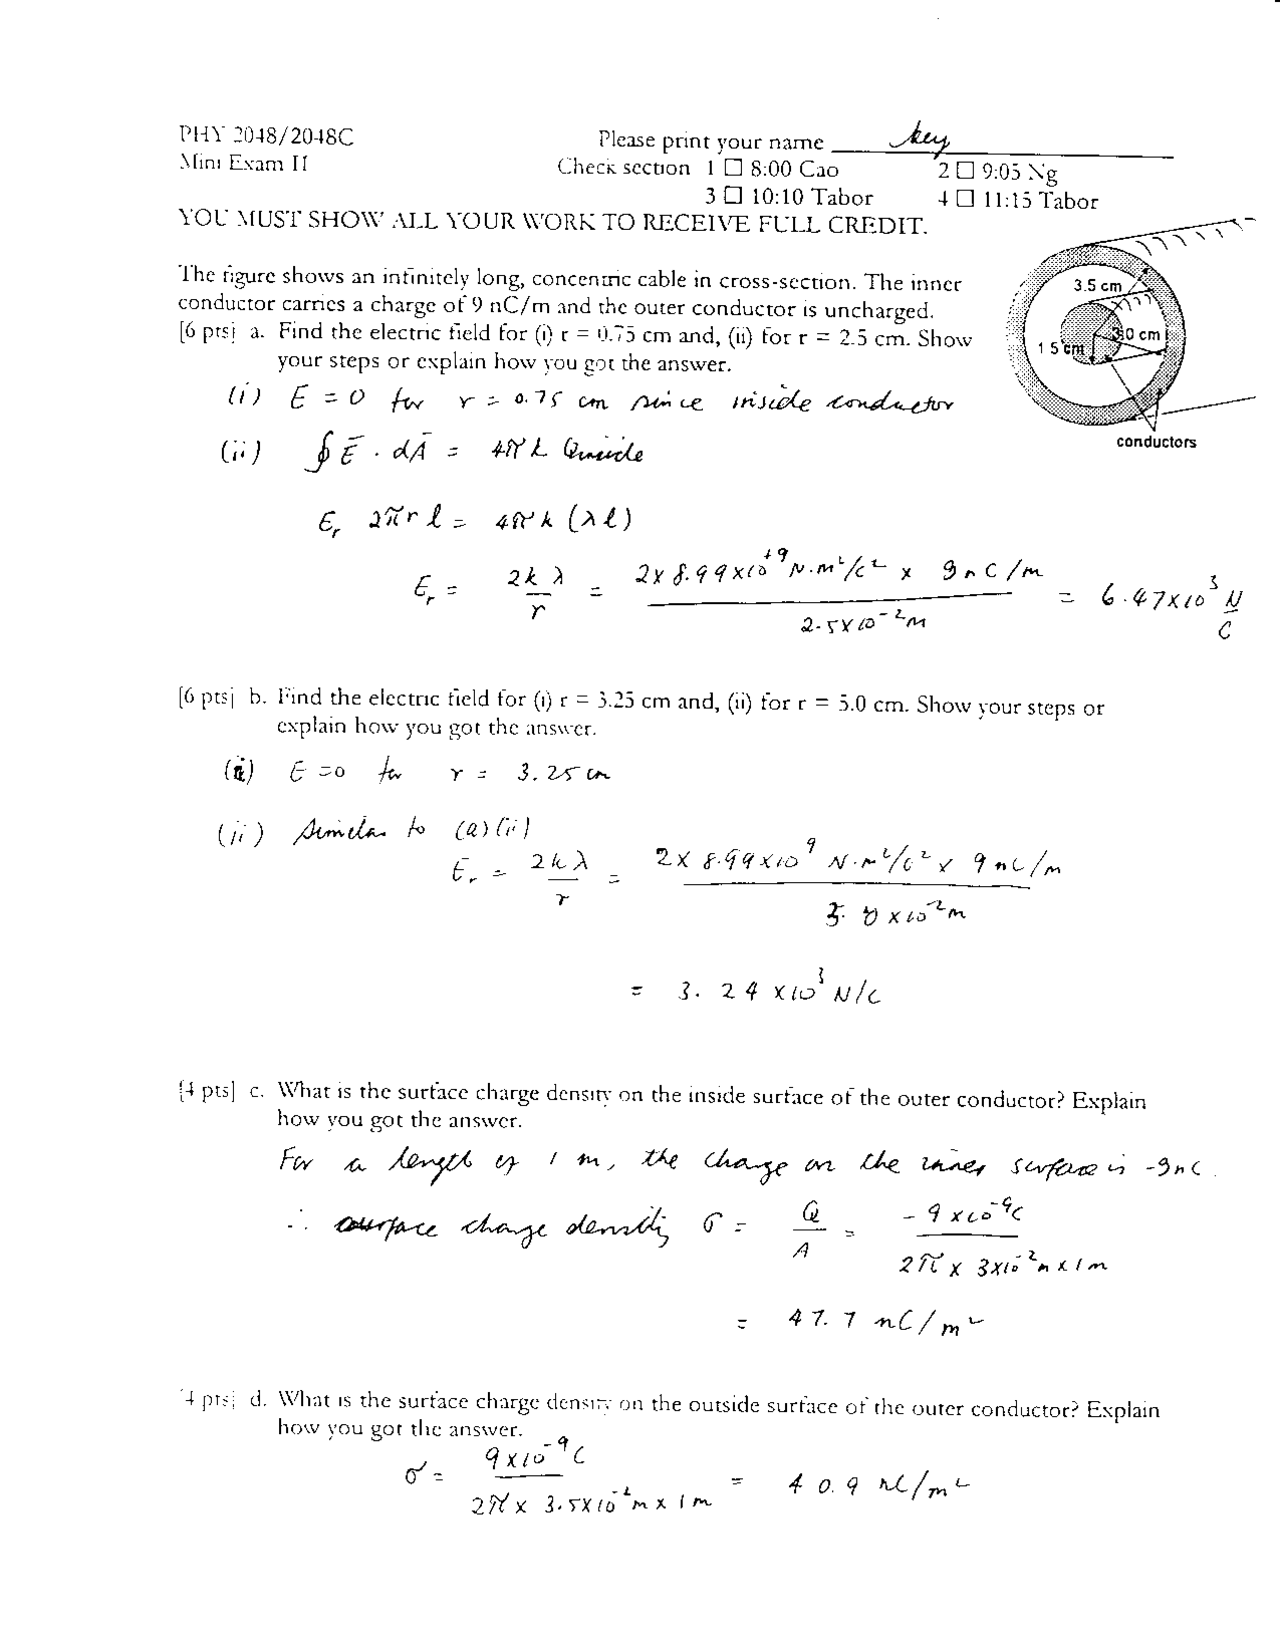 PHY 2048/2048C
Please print your name key
Mini Exam II
Check section 1 ☐ 8:00 Cao 2 ☐ 9:05 Ng
3 ☐ 10:10 Tabor 4 ☐ 11:15 Tabor
YOU MUST SHOW ALL YOUR WORK TO RECEIVE FULL CREDIT.
The figure shows an infinitely long, concentric cable in cross-section. The inner
conductor carries a charge of 9 nC/m and the outer conductor is uncharged.
[6 pts] a. Find the electric field for (i) r = 0.75 cm and, (ii) for r = 2.5 cm. Show
your steps or explain how you got the answer.
3.5 cm
3.0 cm
1.5 cm
conductors
(i) E = 0 for r = 0.75 cm since inside conductor
(ii) ∮ E̅ · dA̅ = 4πk Qinside
E_r 2πr l = 4πk (λl)
E_r = 2kλ / r = 2 x 8.99x10^{+9} N·m²/C² x 9nC/m / 2.5x10^{-2} m = 6.47x10³ N/C
[6 pts] b. Find the electric field for (i) r = 3.25 cm and, (ii) for r = 5.0 cm. Show your steps or
explain how you got the answer.
(i) E = 0 for r = 3.25 cm
(ii) Similar to (a)(ii)
E_r = 2kλ / r = 2 x 8.99x10^9 N·m²/C² x 9 nC/m / 5.0 x10^{-2} m
= 3.24 x10³ N/C
[4 pts] c. What is the surface charge density on the inside surface of the outer conductor? Explain
how you got the answer.
For a length of 1 m, the charge on the inner surface is -9nC.
∴ surface charge density σ = Q / A = -9x10^{-9}C / 2π x 3x10^{-2}m x 1m
= 47.7 nC/m²
[4 pts] d. What is the surface charge density on the outside surface of the outer conductor? Explain
how you got the answer.
σ = 9x10^{-9}C / 2π x 3.5x10^{-2}m x 1m = 40.9 nC/m²